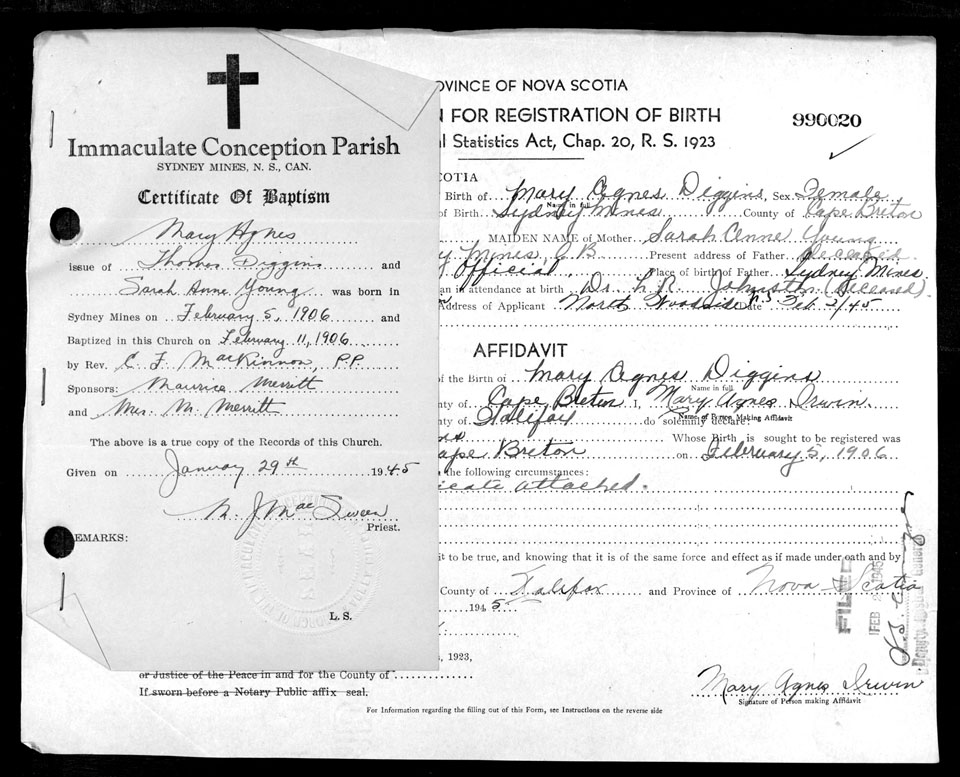 Immaculate Conception Parish
SYDNEY MINES, N. S., CAN.
Certificate Of Baptism
Mary Agnes
issue of Thomas Diggins and
Sarah Anne Young was born in
Sydney Mines on February 5, 1906 and
Baptized in this Church on February 11, 1906
by Rev. C. F. MacKinnon, P.P.
Sponsors: Maurice Merritt
and Mrs. M. Merritt
The above is a true copy of the Records of this Church.
Given on January 29th 1945
M. J. MacSween
Priest.
EMARKS:
L. S.
OVINCE OF NOVA SCOTIA
N FOR REGISTRATION OF BIRTH
990020
l Statistics Act, Chap. 20, R. S. 1923
SCOTIA
Birth of Mary Agnes Diggins, Sex Female
Name in full
of Birth Sydney Mines County of Cape Breton
MAIDEN NAME of Mother Sarah Anne Young
y Mines, C B Present address of Father deceased
Official Place of birth of Father Sydney Mines
an in attendance at birth Dr. L. R. Johnston (deceased)
Address of Applicant North Woodside N.S Date Feb 2/45
AFFIDAVIT
of the Birth of Mary Agnes Diggins
Name in full
nty of Cape Breton I, Mary Agnes Irwin
Name of Person Making Affidavit
nty of Halifax do solemnly declare:
Whose Birth is sought to be registered was
Cape Breton on February 5, 1906
the following circumstances:
icate attached.
it to be true, and knowing that it is of the same force and effect as if made under oath and by
County of Halifax and Province of Nova Scotia
1945
, 1923,
or Justice of the Peace in and for the County of
If sworn before a Notary Public affix seal.
FILED
FEB 1945
Deputy Registrar General
Mary Agnes Irwin
Signature of Person making Affidavit
For Information regarding the filling out of this Form, see Instructions on the reverse side